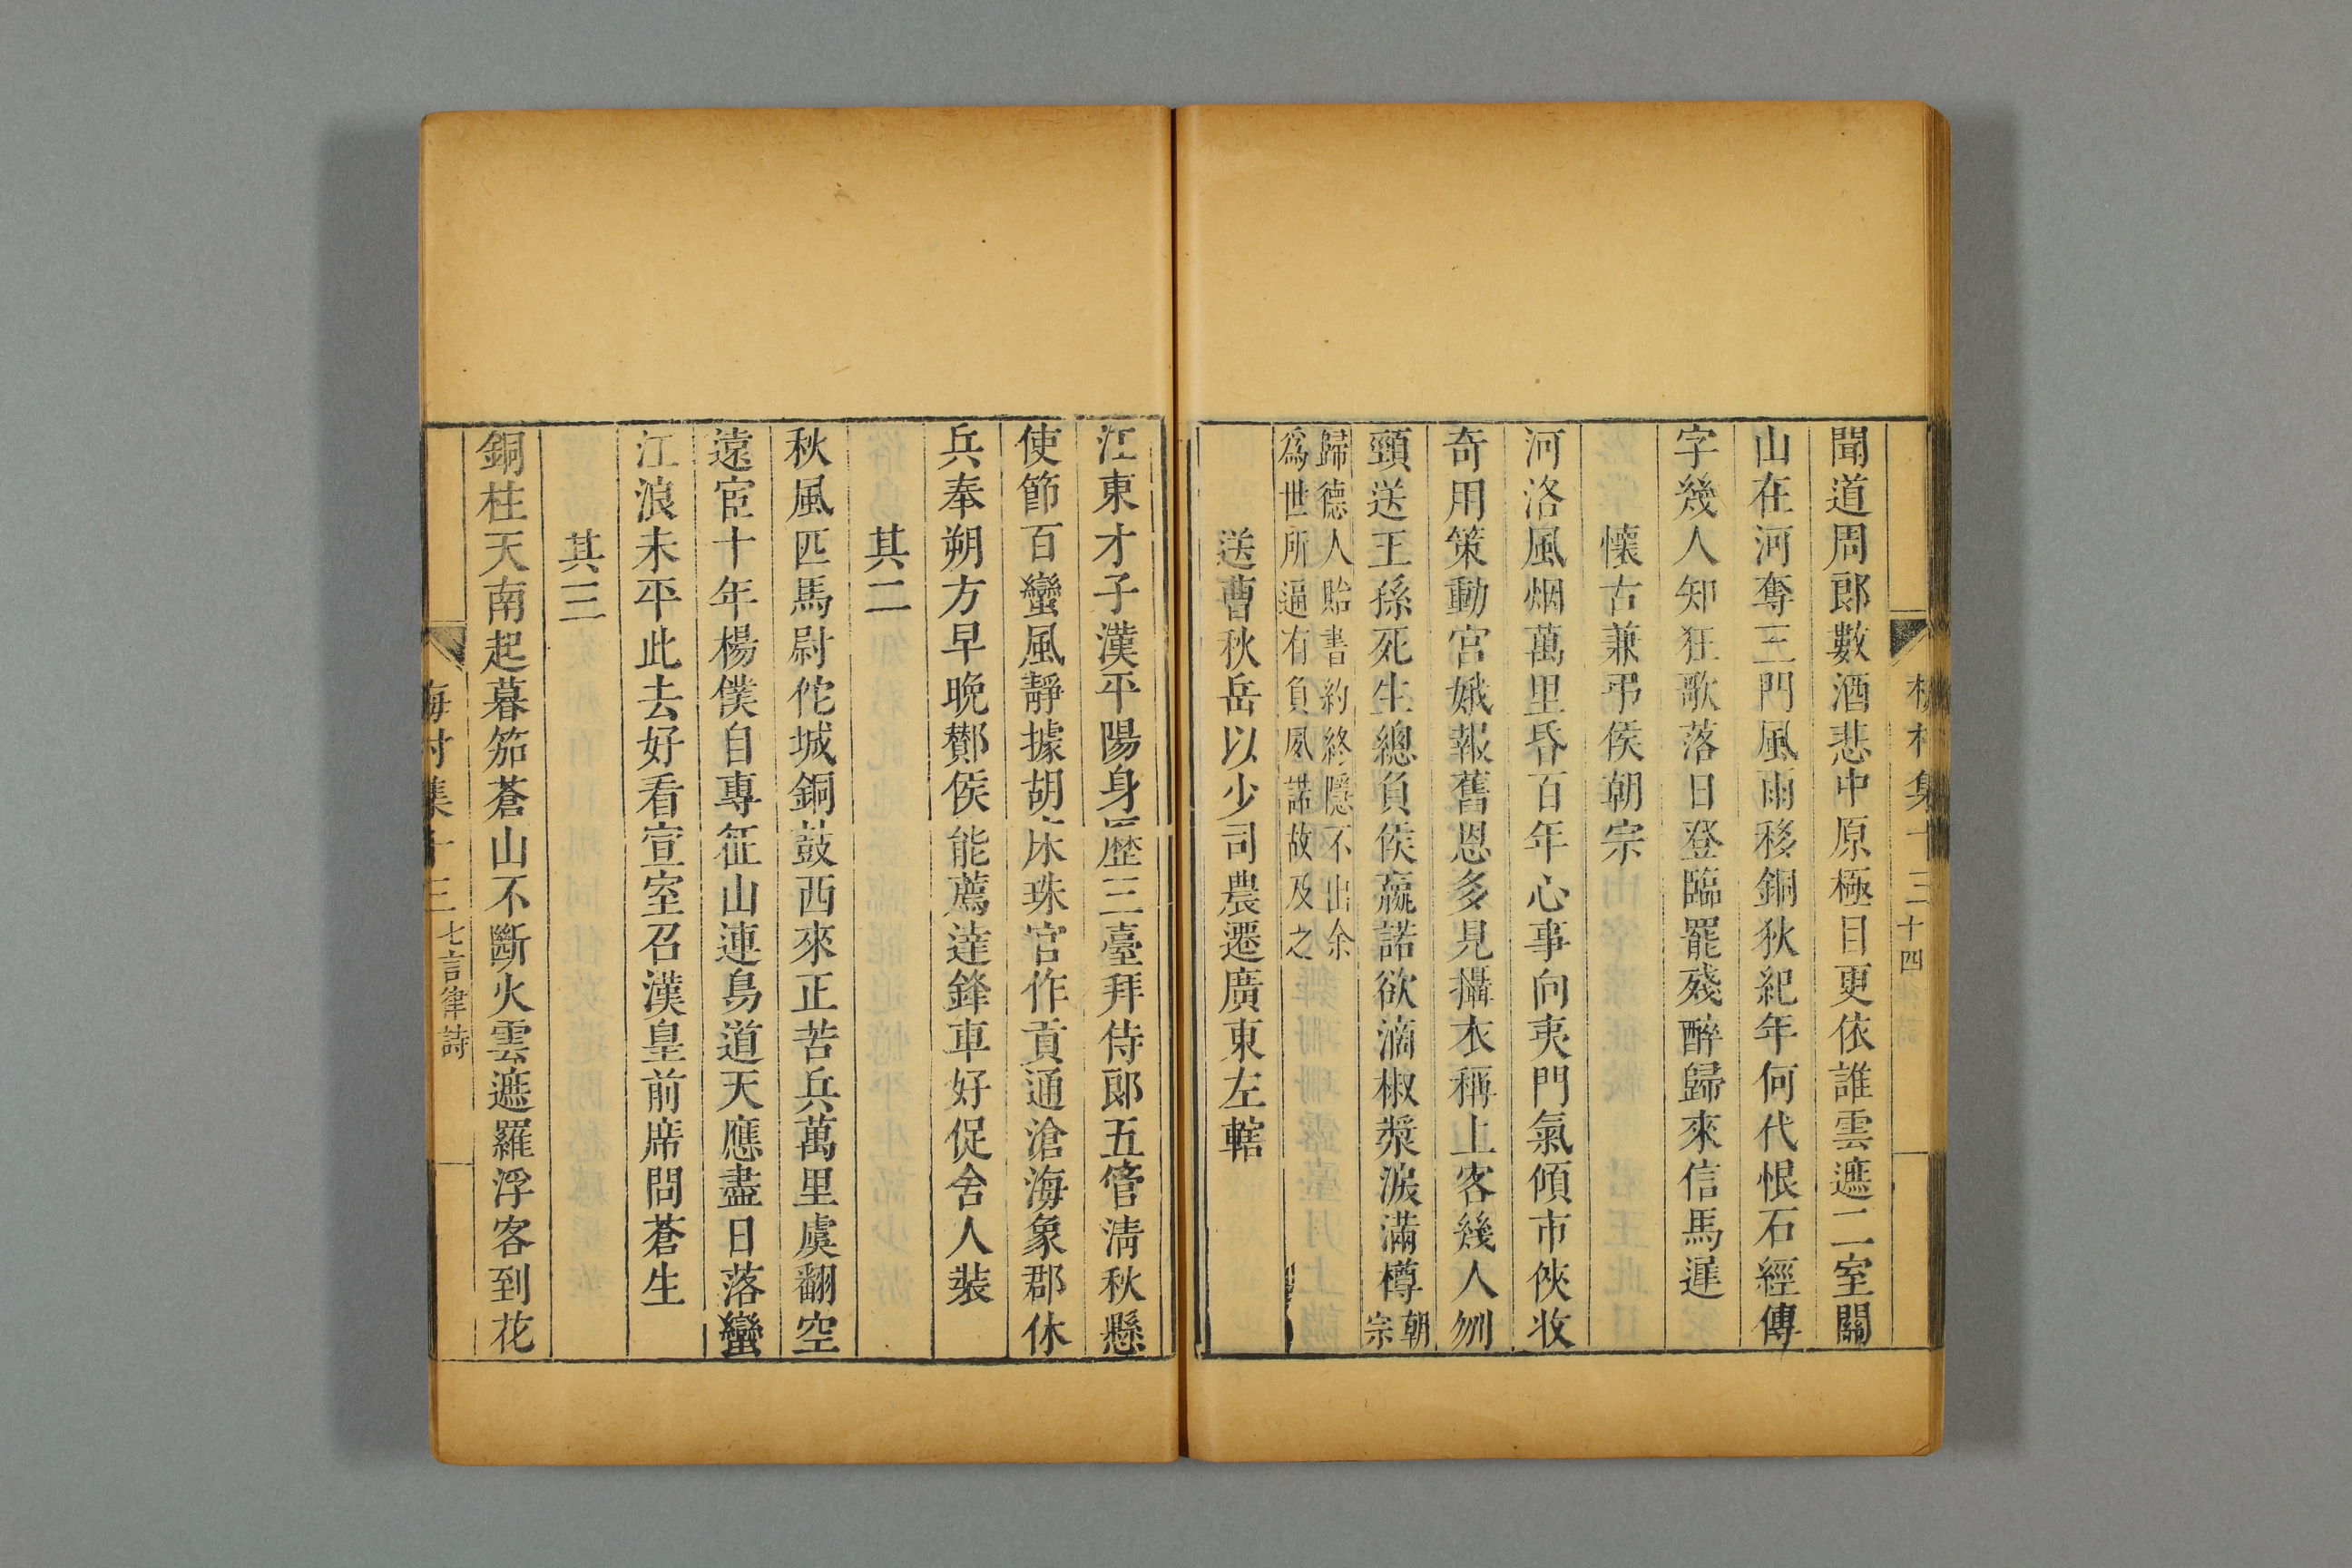 梅村集 十三 十四
聞道周郎數酒悲中原極目更依誰雲遮二室關
山在河奪三門風雨移銅狄紀年何代恨石經傳
字幾人知狂歌落日登臨罷殘醉歸來信馬遲
懷古兼弔侯朝宗
河洛風烟萬里昏百年心事向夷門氣傾市俠收
奇用策動宮娥報舊恩多見攝衣稱上客幾人刎
頸送王孫死生總負侯嬴諾欲滴椒漿淚滿樽朝宗
歸德人貽書約終隱不出余
為世所逼有負夙諾故及之
送曹秋岳以少司農遷廣東左轄
江東才子漢平陽身歷三臺拜侍郎五管清秋懸
使節百蠻風靜據胡床珠官作貢通滄海象郡休
兵奉朔方早晚酇侯能薦達鋒車好促舍人裝
其二
秋風匹馬尉佗城銅鼓西來正苦兵萬里虞翻空
遠宦十年楊僕自專征山連鳥道天應盡日落蠻
江浪未平此去好看宣室召漢皇前席問蒼生
其三
銅柱天南起暮笳蒼山不斷火雲遮羅浮客到花
梅村集 十三 七言律詩